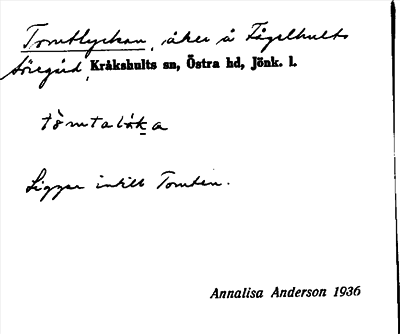 Tomtlyckan, åker å Fågelhults
Söregård, Kråkshults sn, Östra hd, Jönk. l.
Ligger intill Tomten.
Annalisa Anderson 1936